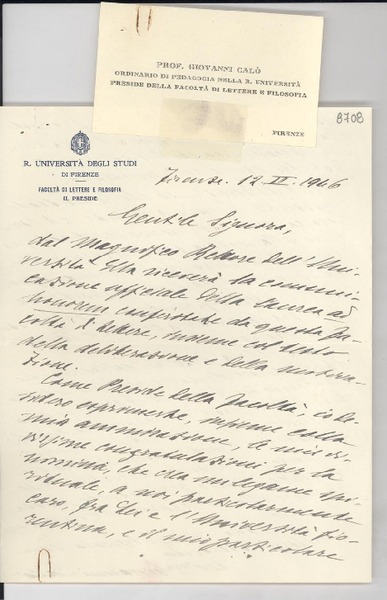 PROF. GIOVANNI CALÒ
ORDINARIO DI PEDAGOGIA NELLA R. UNIVERSITÀ
PRESIDE DELLA FACOLTÀ DI LETTERE E FILOSOFIA
FIRENZE
8708
R. UNIVERSITÀ DEGLI STUDI
DI FIRENZE
FACOLTÀ DI LETTERE E FILOSOFIA
IL PRESIDE
Firenze. 12 II 1946
Gentile Signora,
dal Magnifico Rettore dell'Uni-
versità Ella riceverà la comuni-
cazione ufficiale della laurea ad
honorem conferitale da questa Fa-
coltà di Lettere, insieme col testo
della deliberazione e della motiva-
zione.
Come Preside della Facoltà, io de-
sidero esprimerle, insieme colla
mia ammirazione, le mie vi-
vissime congratulazioni per la
nomina, che crea un legame spi-
rituale, a noi particolarmente
caro, fra Lei e l'Università fio-
rentina, e il mio particolare